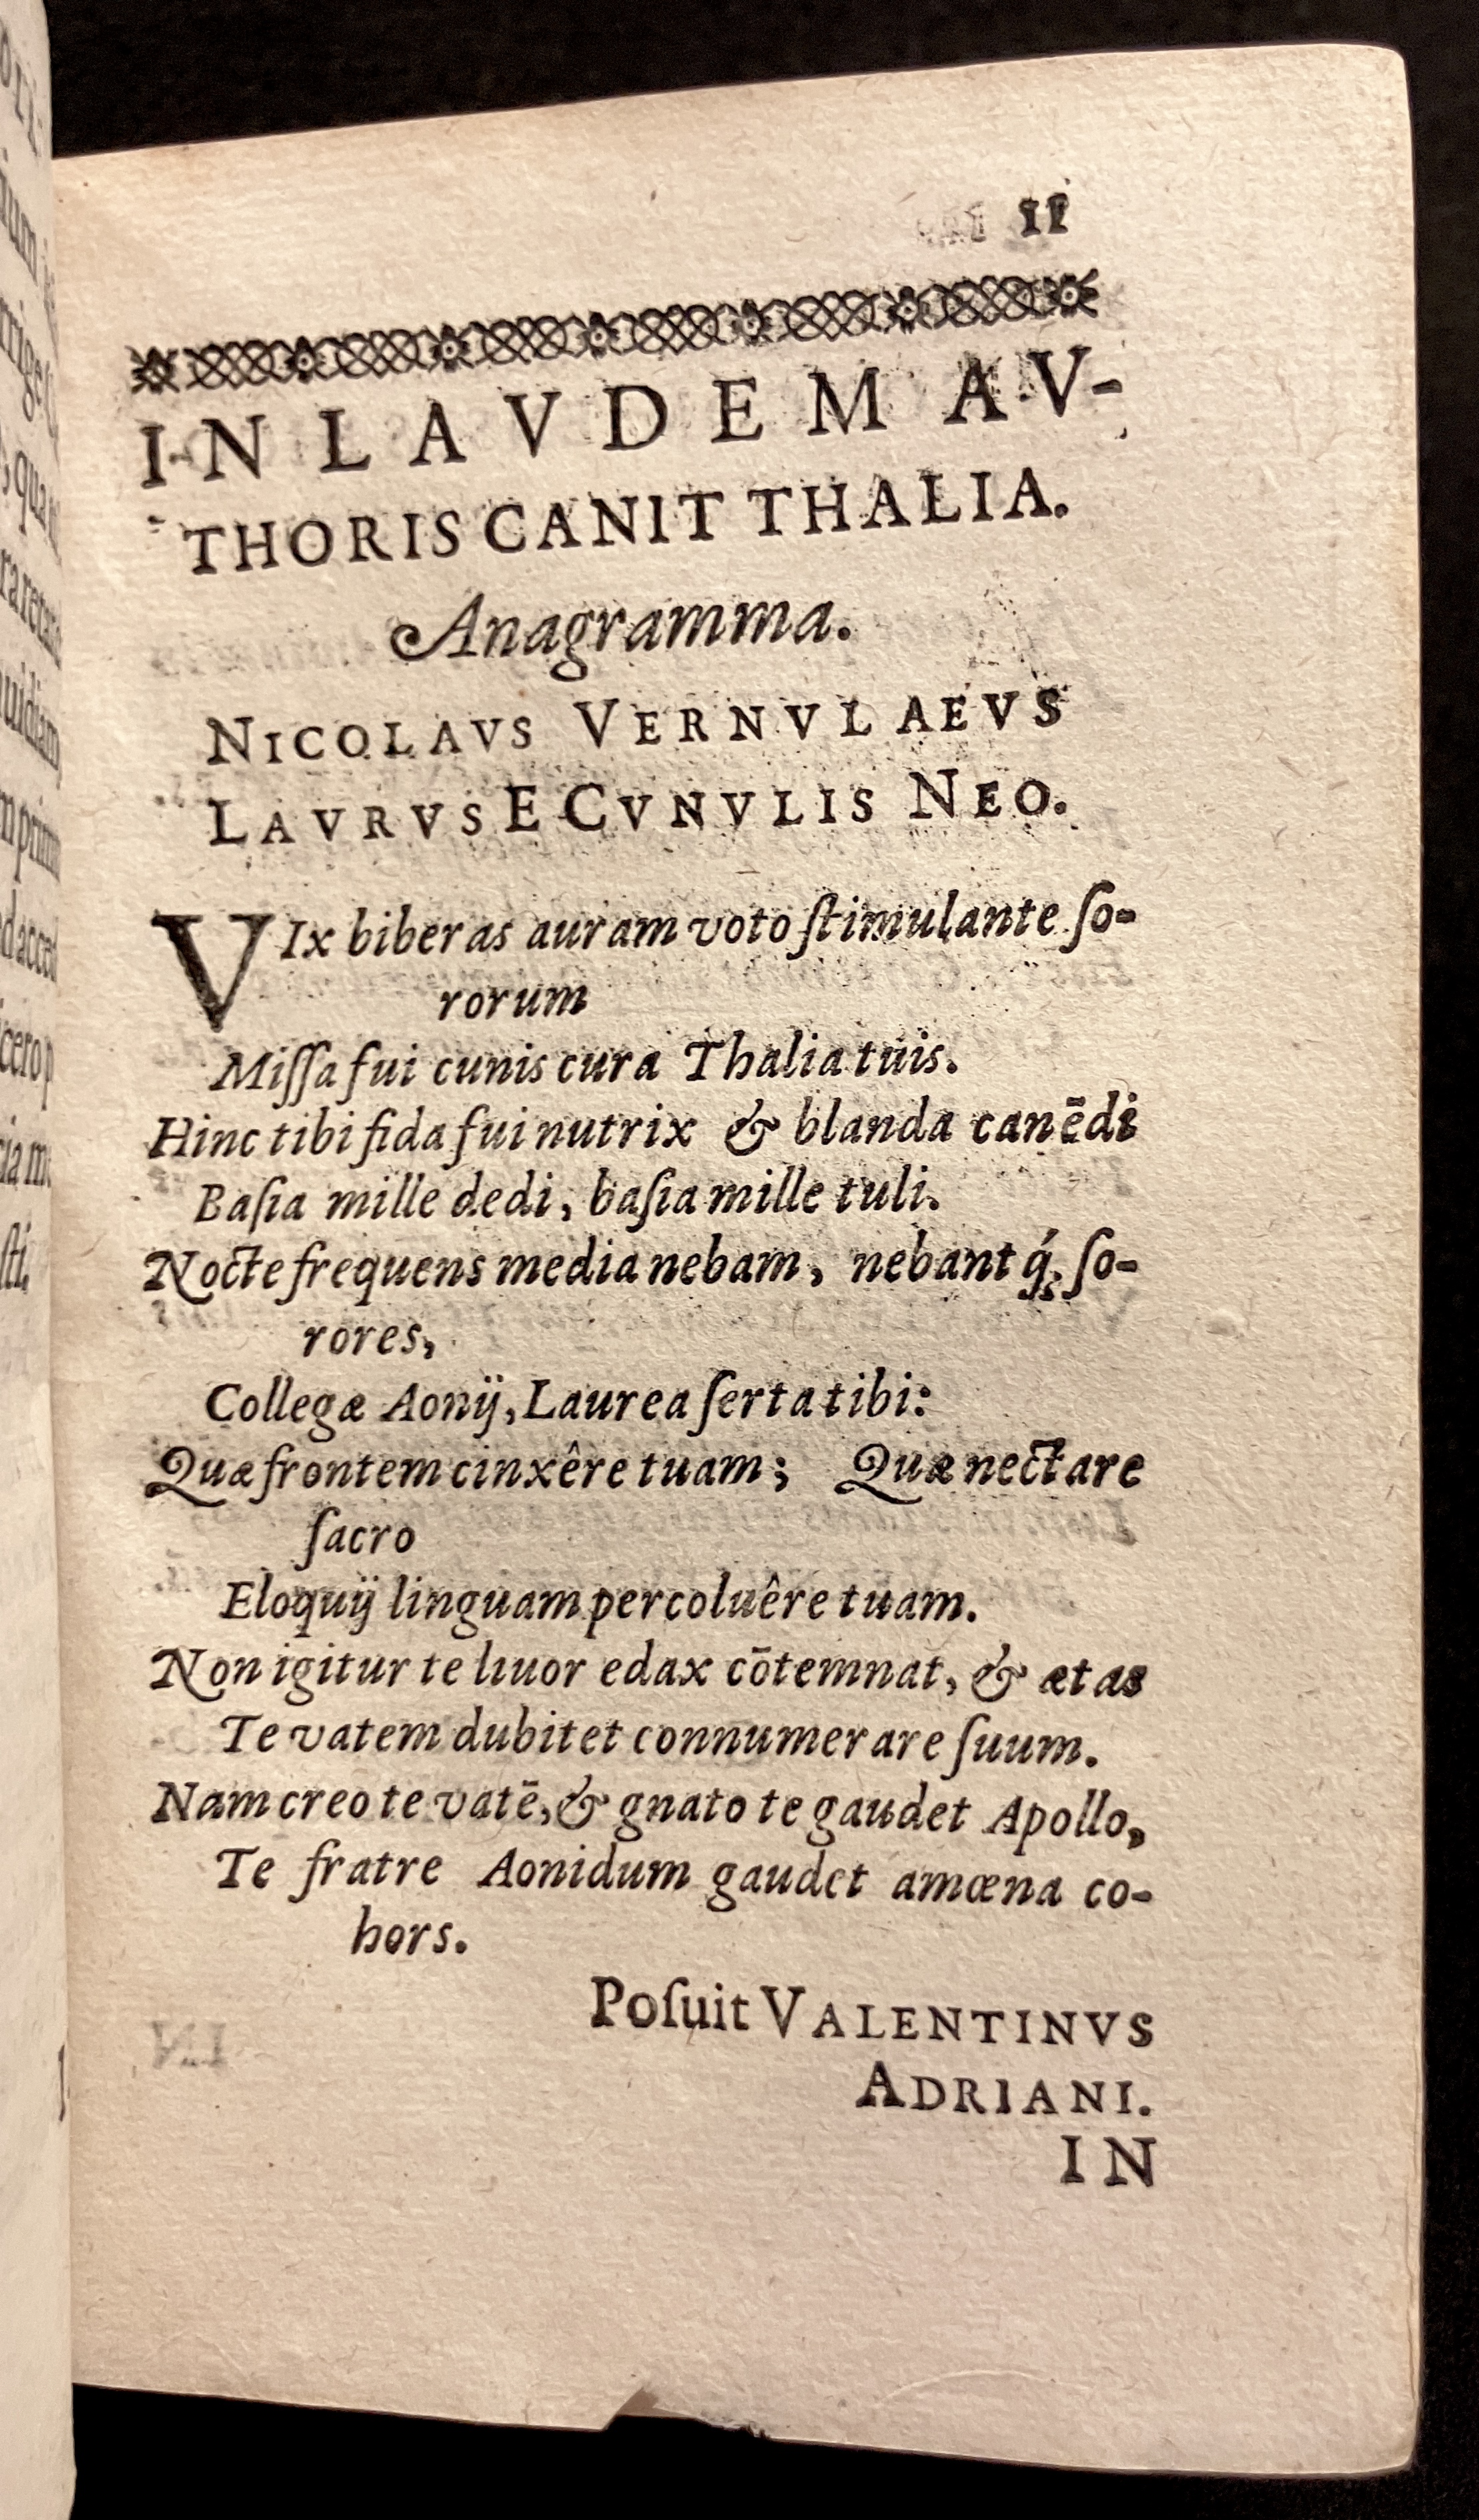 11
IN LAVDEM AV-
THORIS CANIT THALIA.
Anagramma.
NICOLAVS VERNVLAEVS
LAVRVS E CVNVLIS NEO.
VIx biberas auram voto ſtimulante ſo-
rorum
Miſſa fui cunis cura Thalia tuis.
Hinc tibi fida fui nutrix & blanda canēdi
Baſia mille dedi, baſia mille tuli.
Nocte frequens media nebam, nebant q́; ſo-
rores,
Collegæ Aonij, Laurea ſerta tibi:
Quæ frontem cinxêre tuam; Quæ nectare
ſacro
Eloquij linguam percoluêre tuam.
Non igitur te liuor edax cōtemnat, & ætas
Te vatem dubitet connumerare ſuum.
Nam creo te vatē, & gnato te gaudet Apollo,
Te fratre Aonidum gaudet amœna co-
hors.
Poſuit VALENTINVS
ADRIANI.
IN